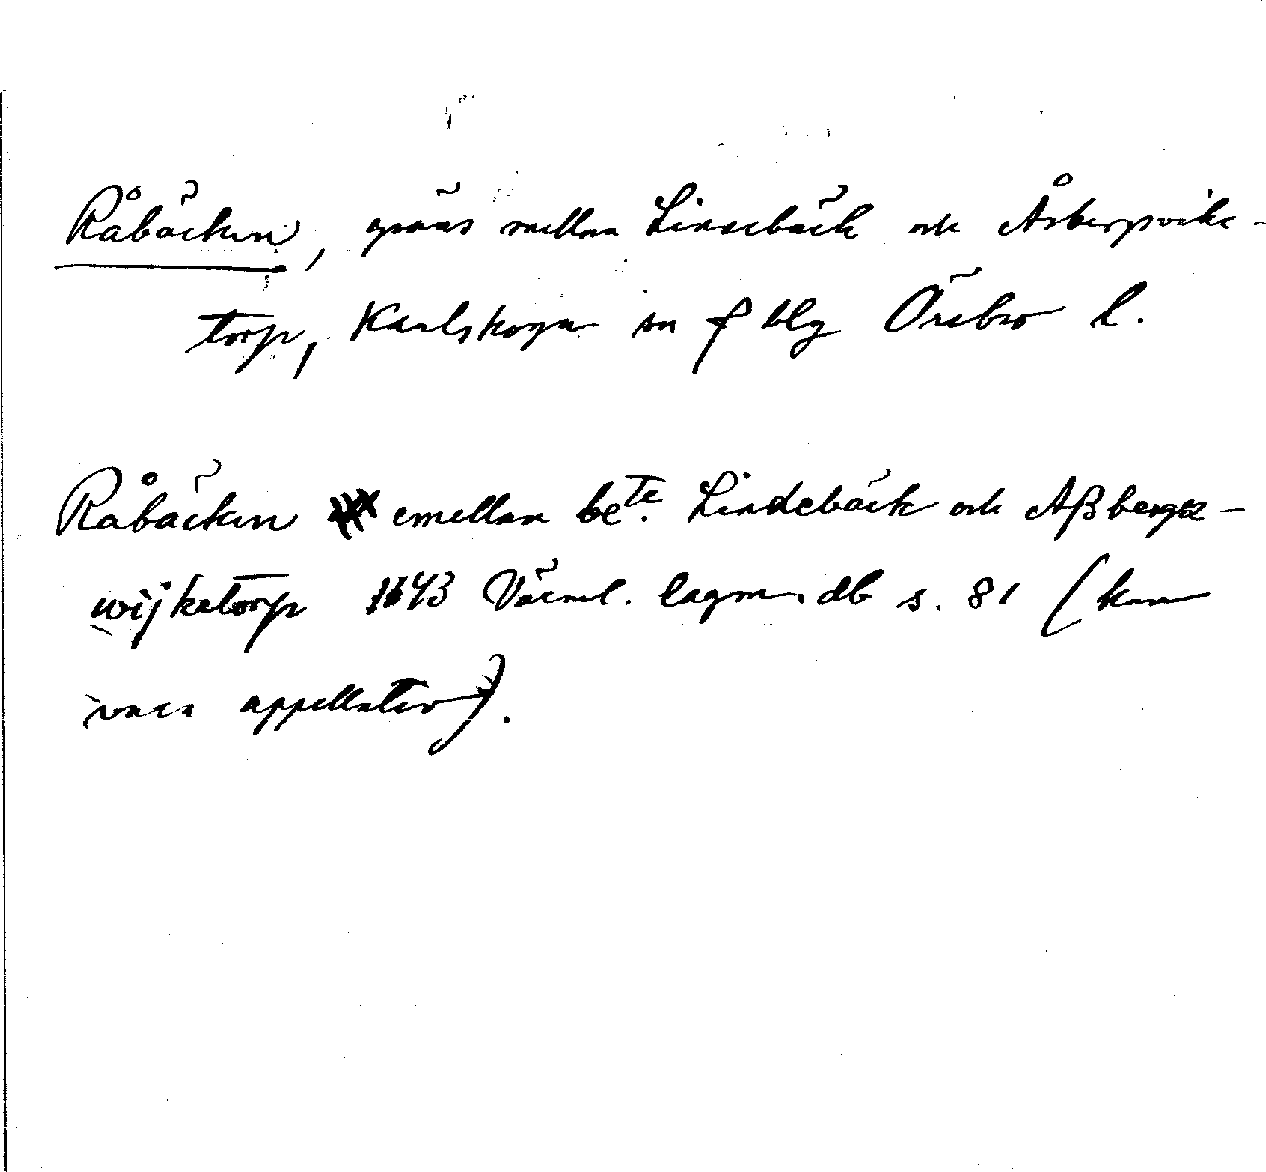 Råbäcken, gräns mellan Linnebäck och Åsbergsviks-
torp, Karlskoga sn f blg Örebro l.
Råbäcken emellan be:te Lindebäck och Aßbergz-
wijkztorp 1643 Värml. lagm. db s. 81 (kan
vara appellativ).